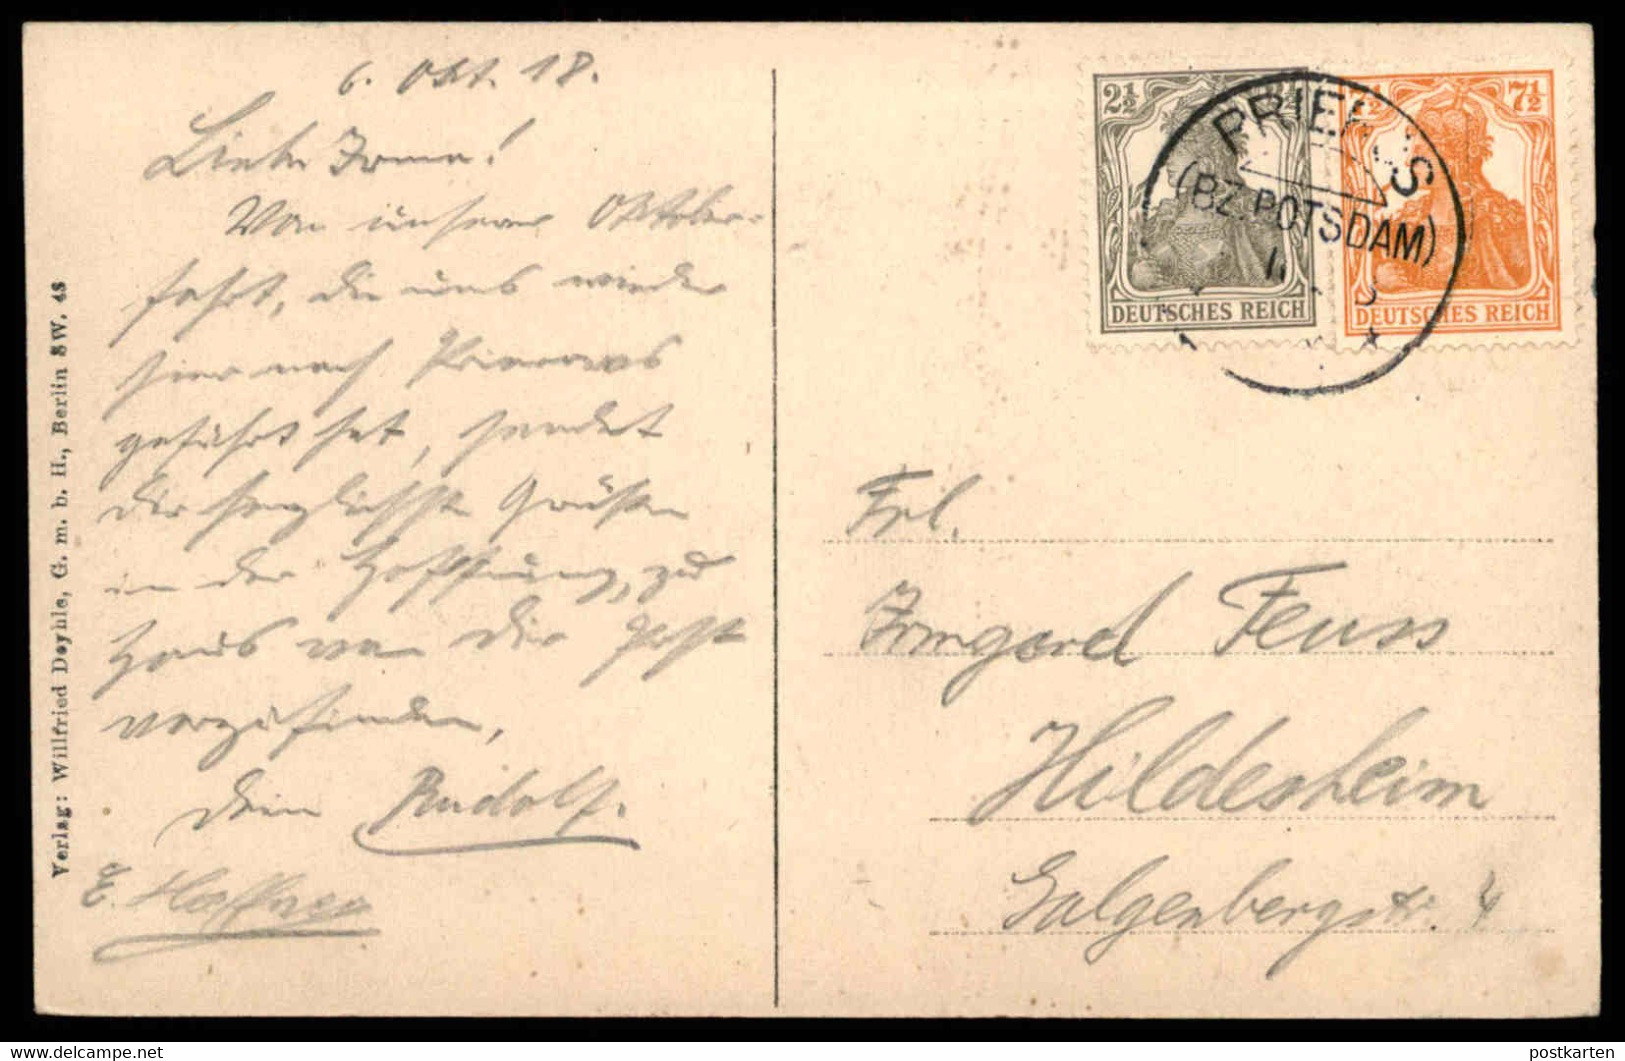 6. Okt. 18.
Liebe Irma!
Von unserer Oktober-
fahrt, die uns wieder
hier nach Prieros
geführt hat, sendet
die herzlichsten Grüße
in der Hoffnung, zu
Haus von Dir Post
vorzufinden,
Dein Rudolf.
E. Haffner
Verlag: Willfried Deyhle, G. m. b. H., Berlin SW. 48
2½ 2½
DEUTSCHES REICH
7½ 7½
DEUTSCHES REICH
PRIEROS
(BZ. POTSDAM)
Frl.
Irmgard Feuss
Hildesheim
Galgenbergstr. 4
postkarten